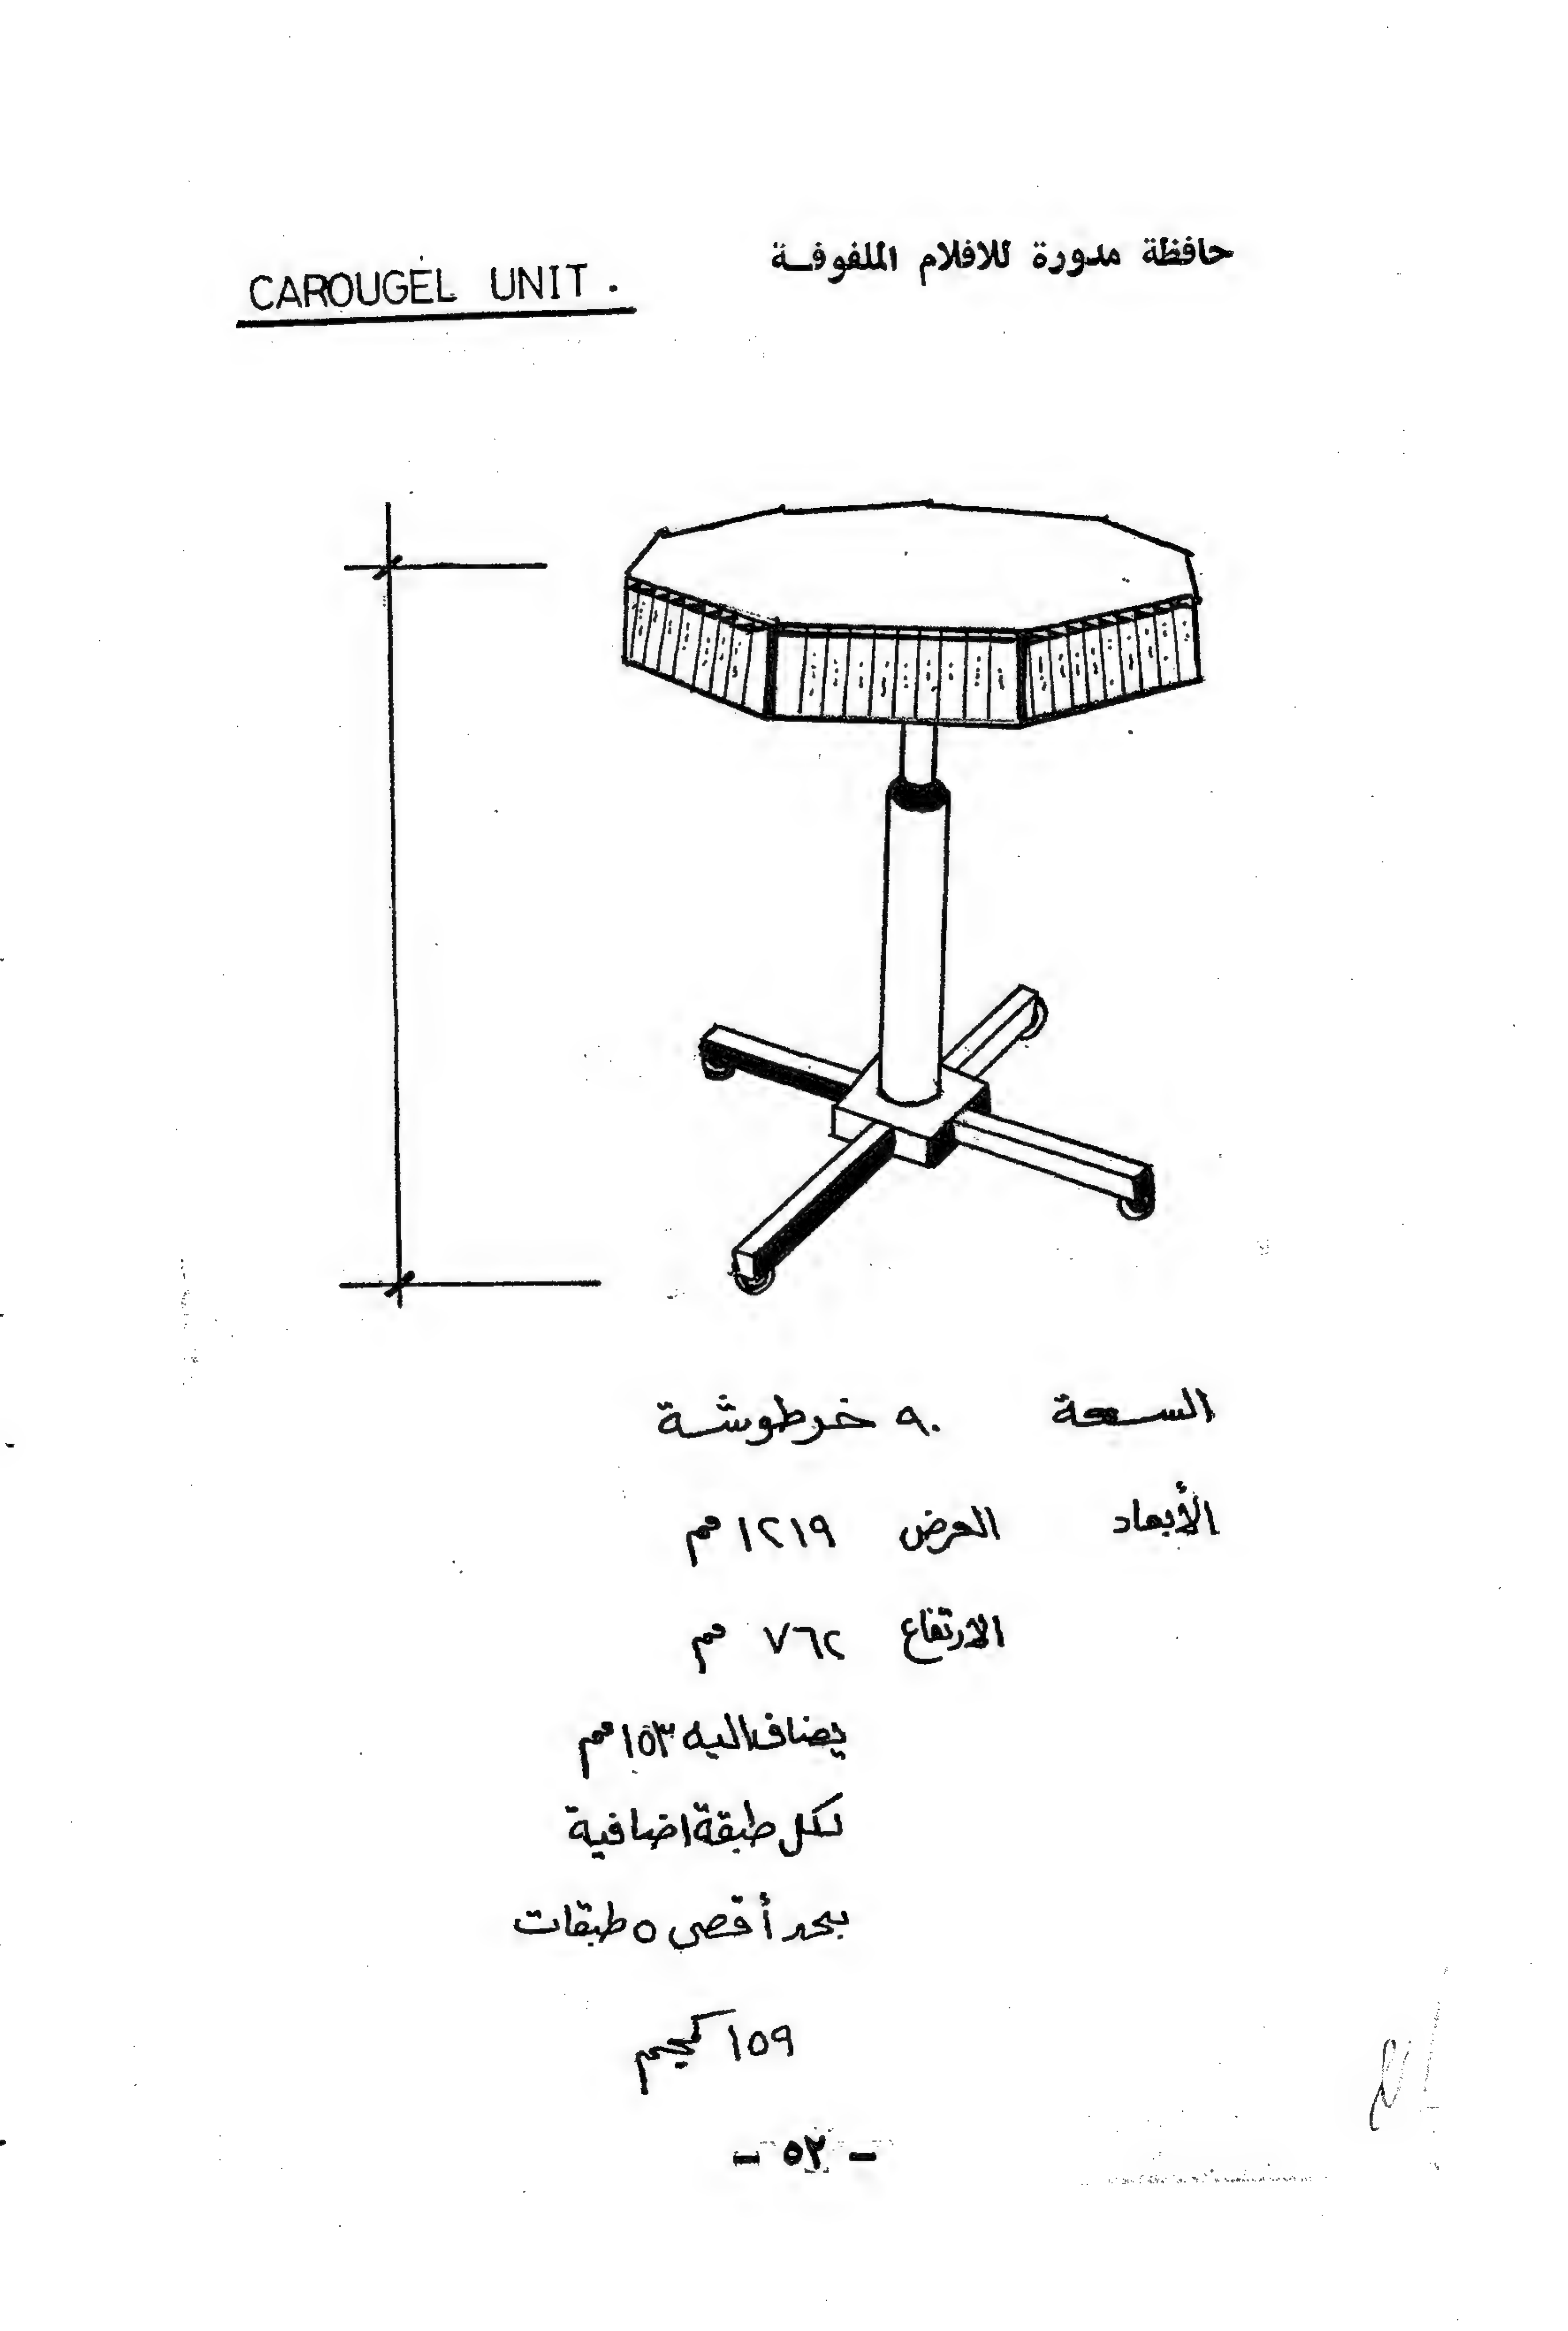 حافظة مدورة للافلام الملفوفـة
CAROUGEL UNIT .
السعة ٩٠ خرطوشة
الأبعاد العرض ١٢١٩ مم
الارتفاع ٧٦٢ مم
يضاف اليه ١٥٣ مم
لكل طبقة اضافية
بحد أقصى ٥ طبقات
١٥٩ كجم
- ٥٢ -